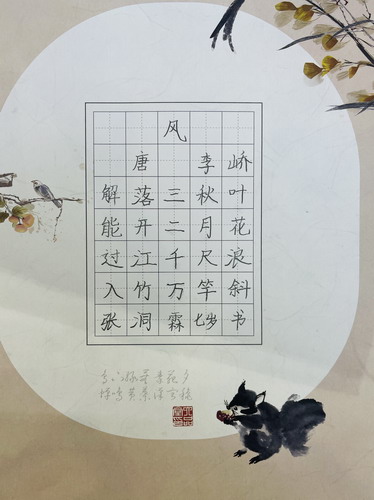 风
唐 李峤
解落三秋叶
能开二月花
过江千尺浪
入竹万竿斜
张洞霖七岁书